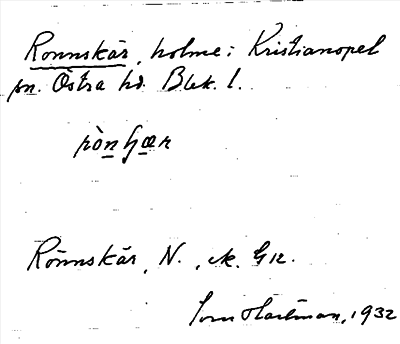 Rönnskär, holme i Kristianopel
sn. Östra hd. Blek. l.
Rönnskär, N., ek. G12.
Hartman, 1932